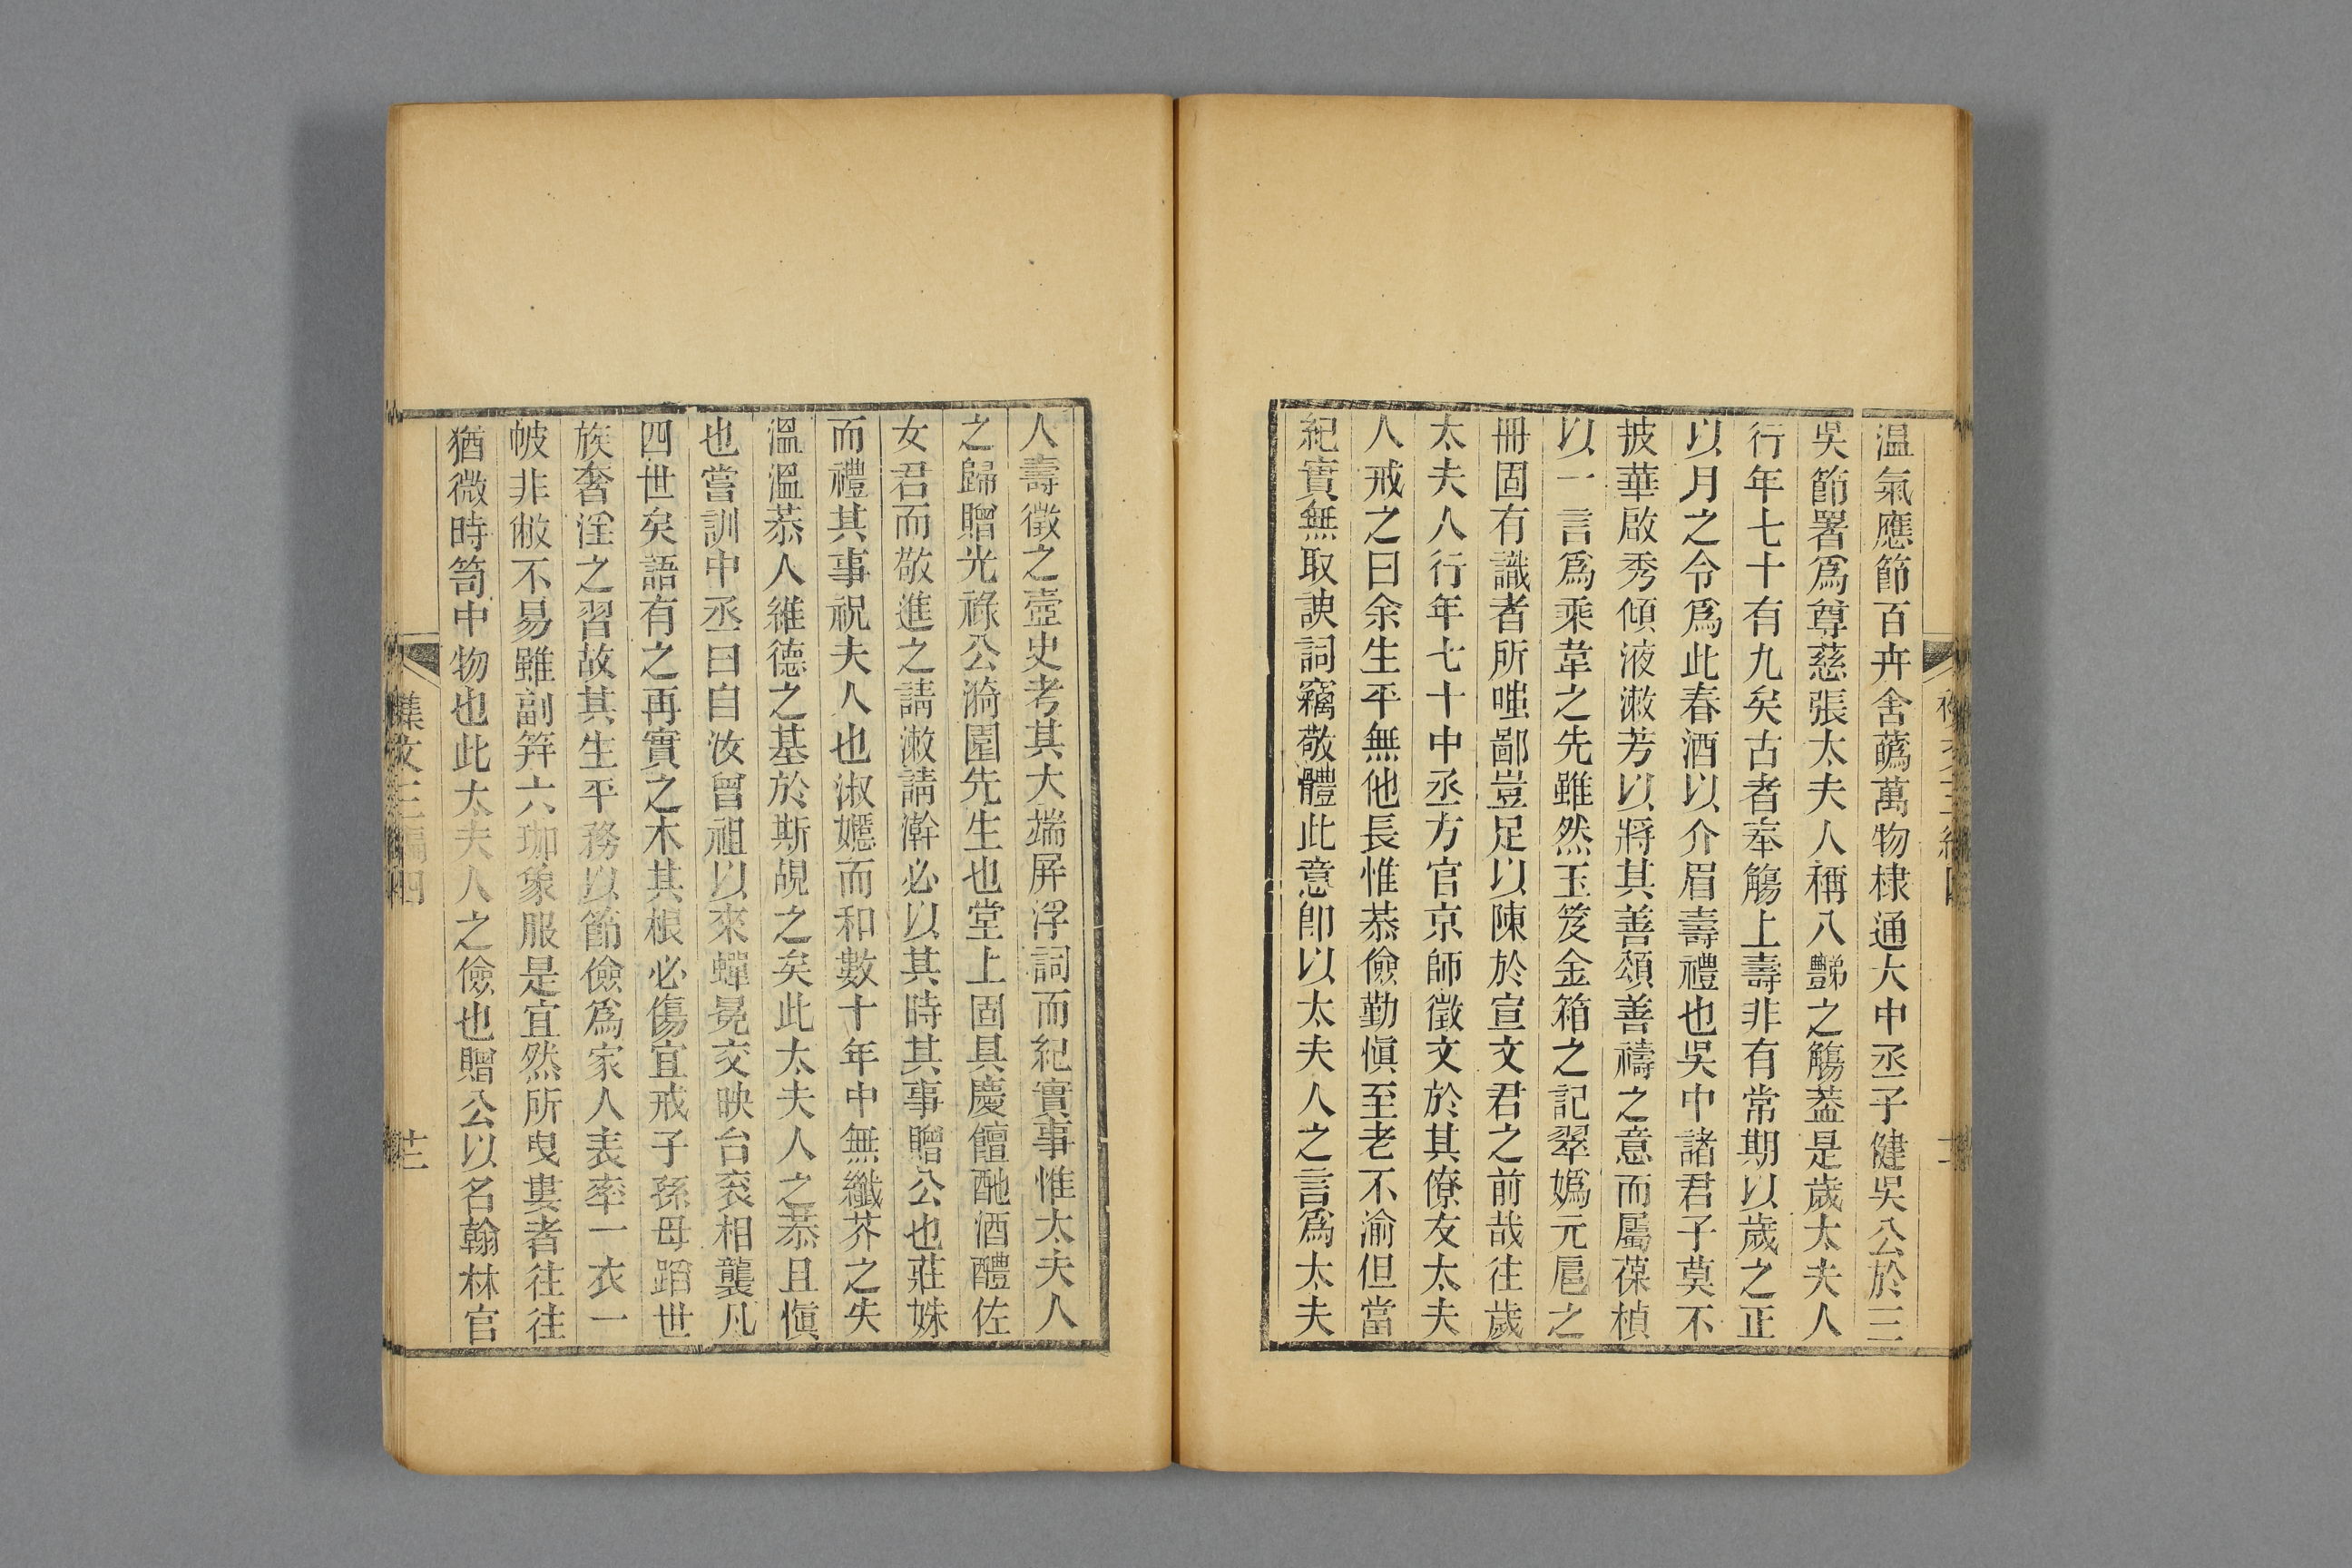 温氣應節百卉舍蘤萬物棣通大中丞子健吳公於三
吳節署爲尊慈張太夫人稱八豑之觴蓋是歲太夫人
行年七十有九矣古者奉觴上壽非有常期以歲之正
以月之令爲此春酒以介眉壽禮也吳中諸君子莫不
披華啟秀傾液漱芳以將其善頌善禱之意而屬葆楨
以一言爲乘韋之先雖然玉笈金箱之記翠嬀元扈之
冊固有識者所嗤鄙豈足以陳於宣文君之前哉往歲
太夫人行年七十中丞方官京師徵文於其僚友太夫
人戒之曰余生平無他長惟恭儉勤愼至老不渝但當
紀實無取諛詞竊敬體此意卽以太夫人之言爲太夫
人壽徵之壼史考其大端屏浮詞而紀實事惟太夫人
之歸贈光祿公漪園先生也堂上固具慶饘酏酒醴佐
女君而敬進之請漱請澣必以其時其事贈公也莊姝
而禮其事祝夫人也淑嬺而和數十年中無纖芥之失
溫溫恭人維德之基於斯覘之矣此太夫人之恭且愼
也嘗訓中丞曰自汝曾祖以來蟬冕交映台衮相襲凡
四世矣語有之再實之木其根必傷宜戒子孫毋蹈世
族奢淫之習故其生平務以節儉爲家人表率一衣一
帔非敝不易雖副笄六珈象服是宜然所曳婁者往往
猶微時笥中物也此太夫人之儉也贈公以名翰林官
襍文三編四
廿